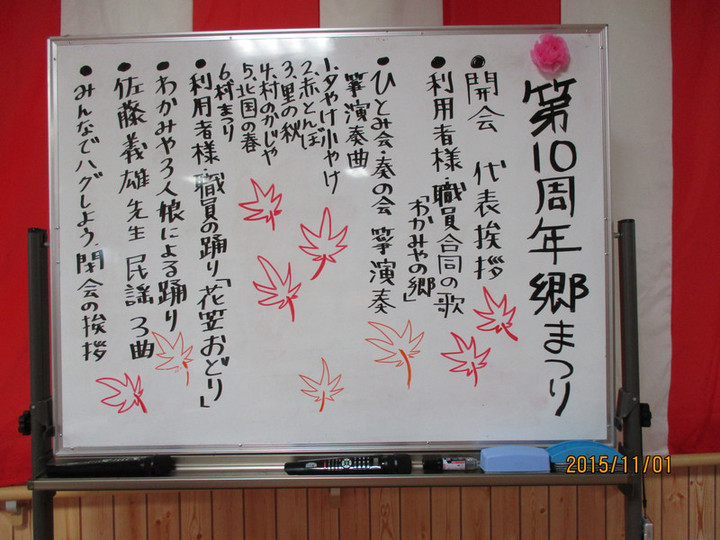 第10周年郷まつり
●開会 代表挨拶
●利用者様・職員合同の歌
「わかみやの郷」
●ひとみ会・奏の会 箏演奏
箏演奏曲
1.夕やけ小やけ
2.赤とんぼ
3.里の秋
4.村のかじや
5.北国の春
6.村まつり
●利用者様・職員の踊り「花笠おどり」
●わかみや3人娘による踊り
●佐藤義雄先生 民謡 3曲
●みんなでハグしよう.閉会の挨拶
2015/11/01